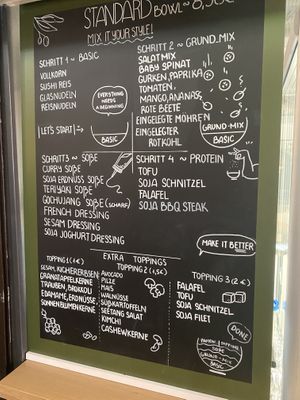 STANDARD BOWL ~ 8,50€
MIX IT YOUR STYLE!
SCHRITT 1 ~ BASIC
VOLLKORN
SUSHI REIS
GLASNUDELN
REISNUDELN
EVERYTHING
NEEDS
A BEGINNING
LET'S START
BASIC
SCHRITT 2 ~ GRUND-MIX
SALATMIX
BABY SPINAT
GURKEN, PAPRIKA
TOMATEN,
MANGO, ANANAS
ROTE BEETE
EINGELEGTE MÖHREN
EINGELEGTER
ROTKOHL
GRUND-MIX
BASIC
SCHRITT 3 ~ SOßE
CURRY SOßE
SOJA ERDNUSS SOßE
TERIYAKI SOßE
GOCHUJANG SOßE (SCHARF)
FRENCH DRESSING
SESAM DRESSING
SOJA JOGHURT DRESSING
SCHRITT 4 ~ PROTEIN
TOFU
SOJA SCHNITZEL
FALAFEL
SOJA BBQ STEAK
MAKE IT BETTER
EXTRA TOPPINGS
TOPPING 1 (1€)
SESAM, KICHERERBSEN
GRANATAPFELKERNE
TRAUBEN, BROKKOLI
EDAMAME, ERDNÜSSE,
SONNENBLUMENKERNE
TOPPING 2 (1,5€)
AVOCADO
PILZE
MAIS
WALNÜSSE
SÜßKARTOFFELN
SEETANG SALAT
KIMCHI
CASHEWKERNE
TOPPING 3 (2€)
FALAFEL
TOFU
SOJA SCHNITZEL
SOJA FILET
DONE
SOßE
GRUND-MIX
BASIC